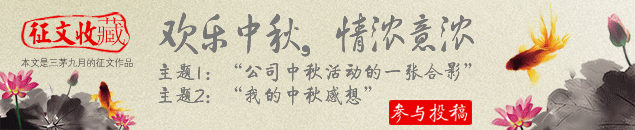 征文收藏
本文是三茅九月的征文作品
欢乐中秋，情浓意浓
主题1：“公司中秋活动的一张合影”
主题2：“我的中秋感想”
参与投稿